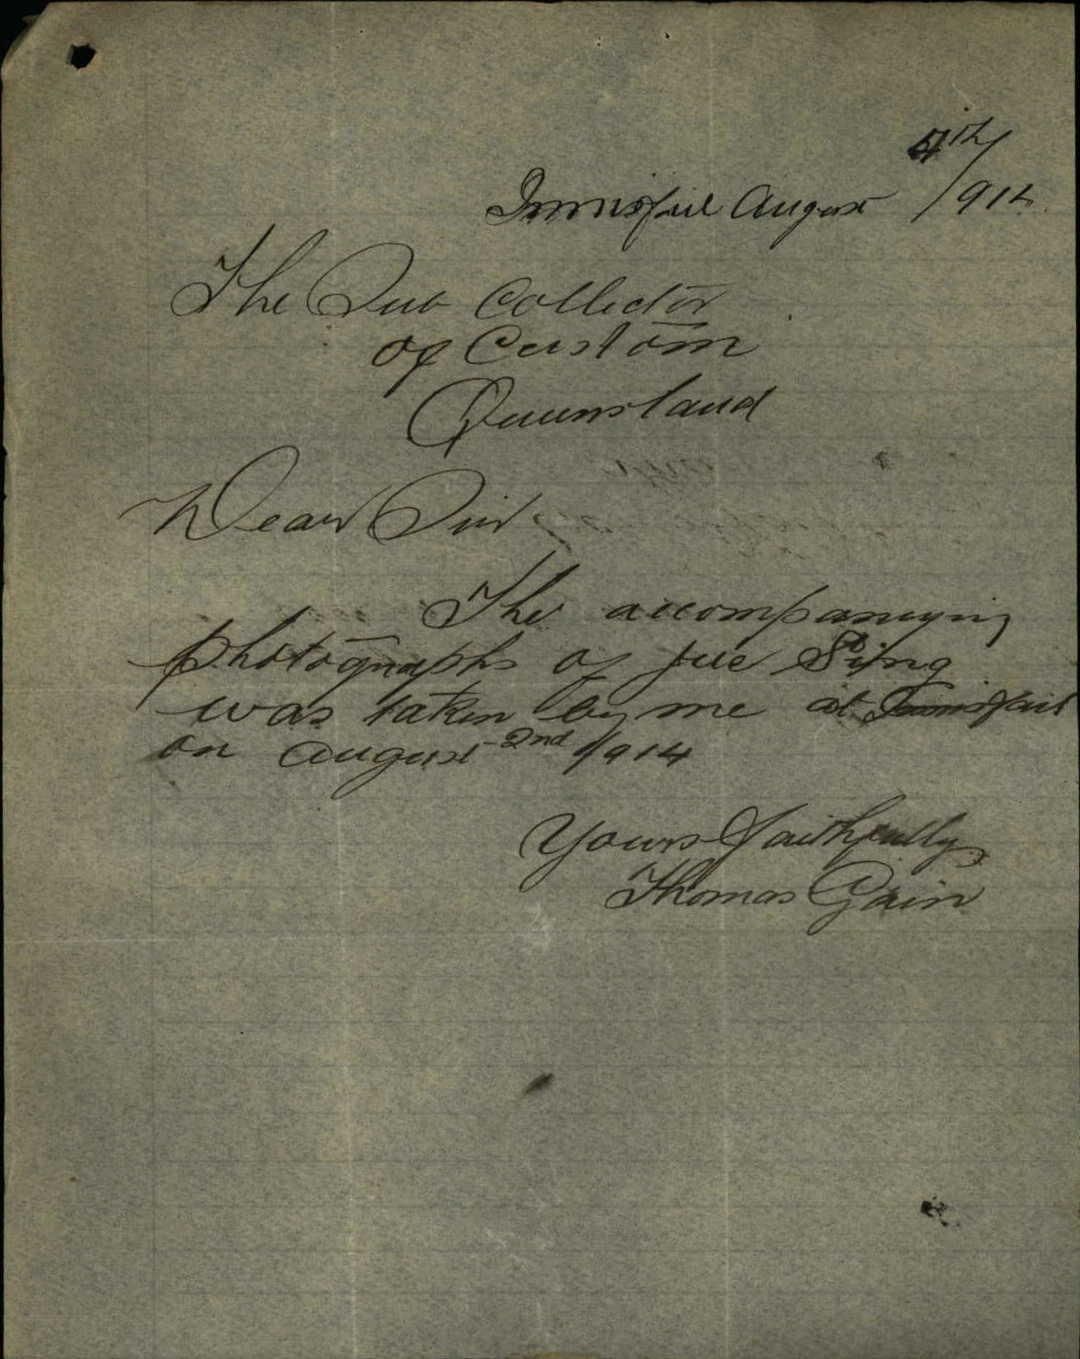 Innisfail August 4th/914
The Sub Collector
of Custom
Queensland
Dear Sir
The accompanying
photographs of Jue Sing
was taken by me at Innisfail
on August 2nd 1914
Yours Faithfully
Thomas Gain